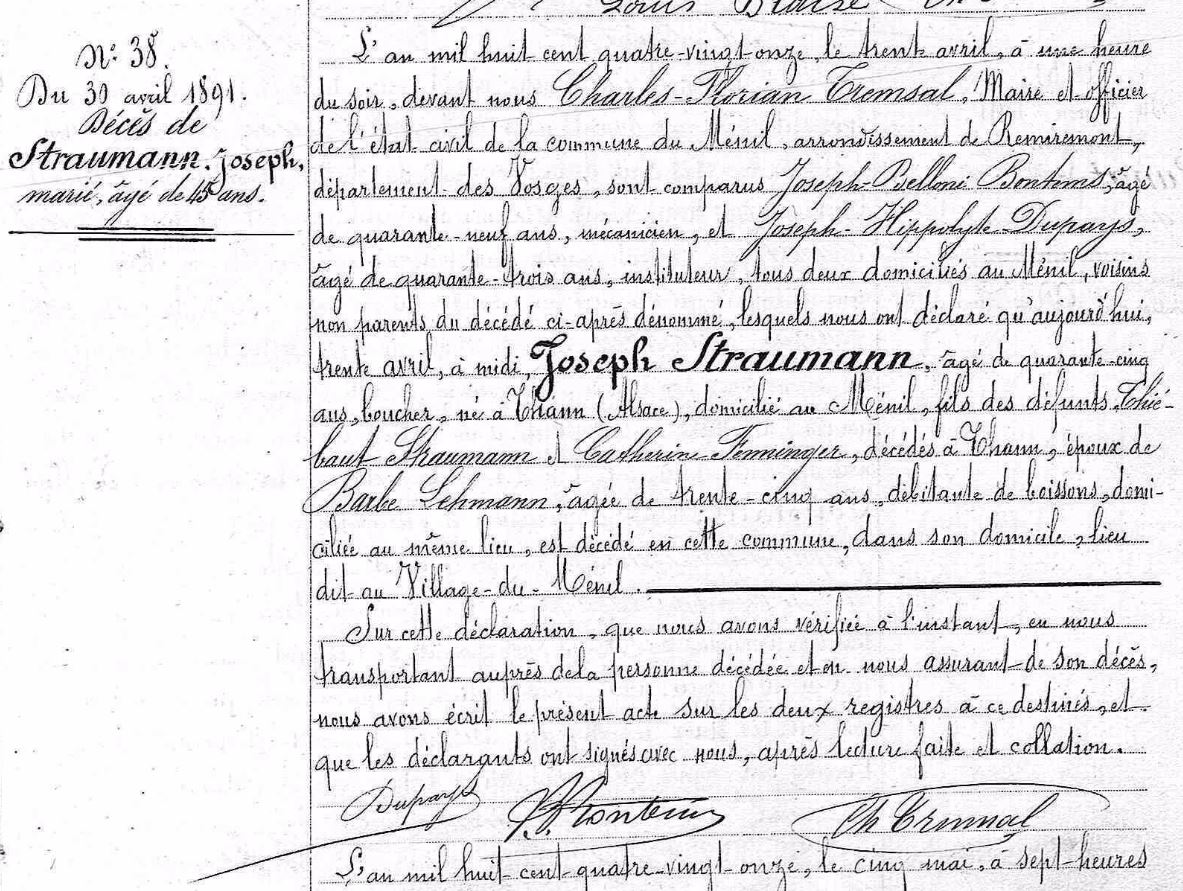 Louis Blaise
N: 38.
Du 30 avril 1891.
Décès de
Straumann Joseph,
marié, âgé de 45 ans.
L'an mil huit cent quatre-vingt-onze, le trent avril, à une heure
du soir, devant nous Charles-Florian Tremsal, Maire et officier
de l'état civil de la commune du Ménil, arrondissement de Remiremont,
département des Vosges, sont comparus Joseph-Belloni Bontems, âgé
de quarante-neuf ans, mécanicien, et Joseph-Hippolyte Dupays,
âgé de quarante-trois ans, instituteur, tous deux domiciliés au Ménil, voisins
non parents du décédé ci-après dénommé, lesquels nous ont déclaré qu'aujourd'hui,
trente avril, à midi, Joseph Straumann, âgé de quarante-cinq
ans, boucher, né à Thann (Alsace), domicilié au Ménil, fils des défunts Thié-
baut Straumann et Catherin Femminger, décédés à Thann, époux de
Barbe Lehmann, âgée de trente-cinq ans, débitante de boissons, domi-
ciliée au même lieu, est décédé en cette commune, dans son domicile, lieu
dit au Village-du-Ménil.
Sur cette déclaration, que nous avons vérifiée à l'instant, en nous
transportant auprès de la personne décédée et en nous assurant de son décès,
nous avons écrit le présent acte sur les deux registres à ce destinés, et
que les déclarants ont signés avec nous, après lecture faite et collation.
Dupays
Bontems
Ch Tremsal
L'an mil huit cent quatre-vingt onze, le cinq mai, à sept heures